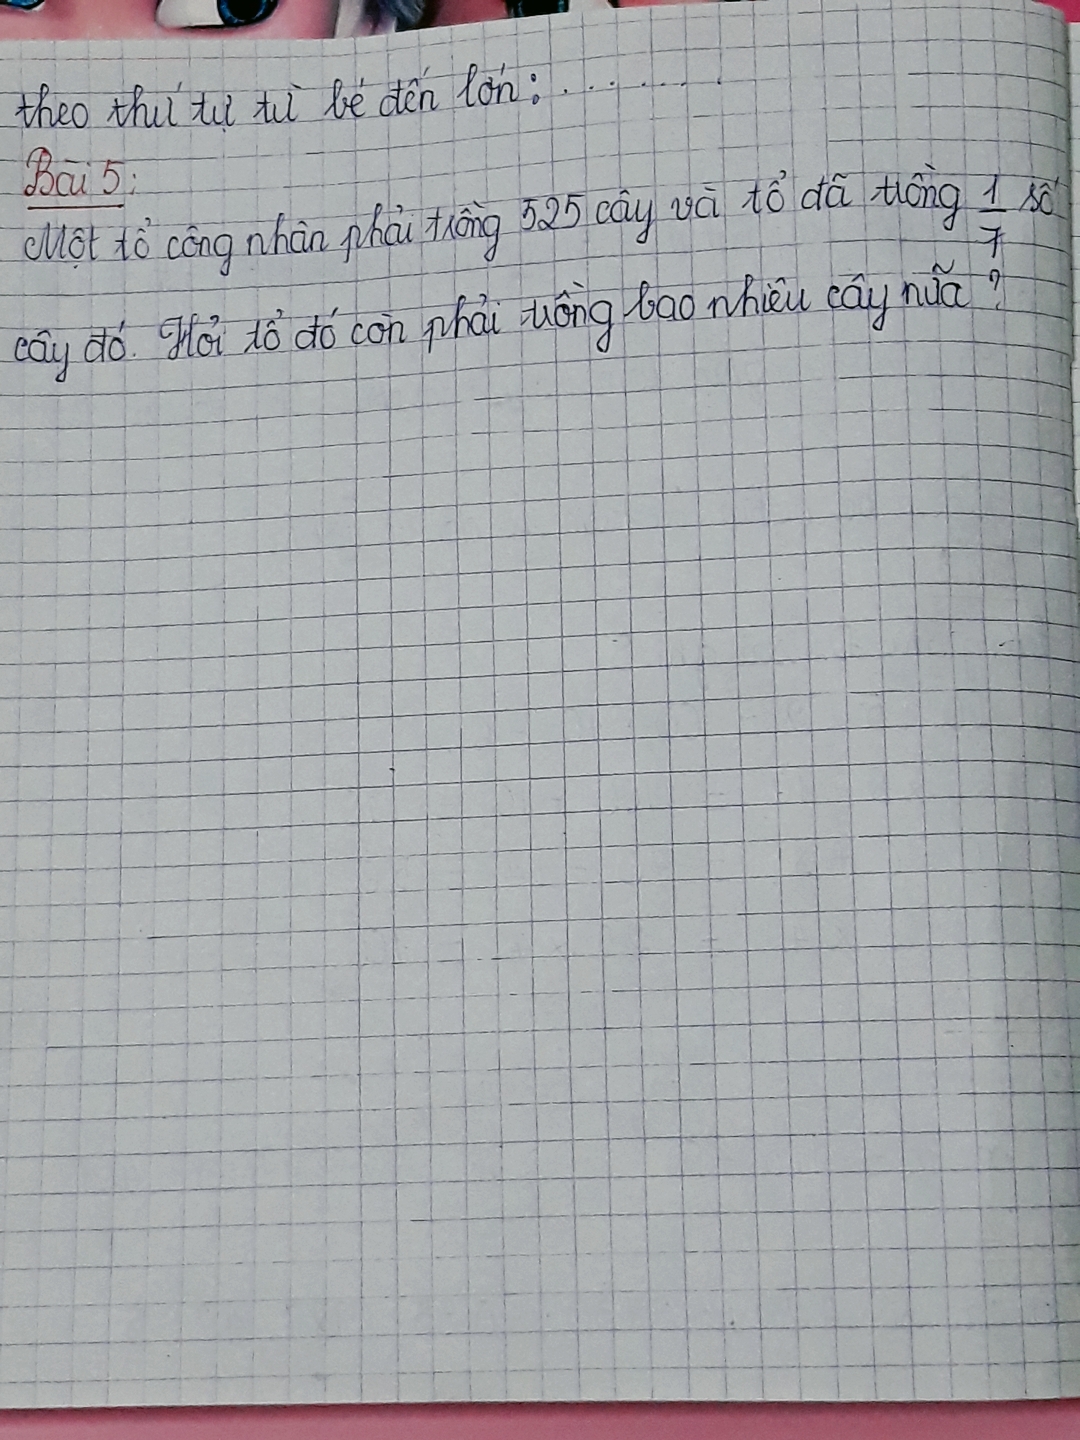 theo thứ tự từ bé đến lớn: . . . . . . . . .
Bài 5:
Một tổ công nhân phải trồng 525 cây và tổ đã trồng 1/7 số
cây đó. Hỏi tổ đó còn phải trồng bao nhiêu cây nữa ?